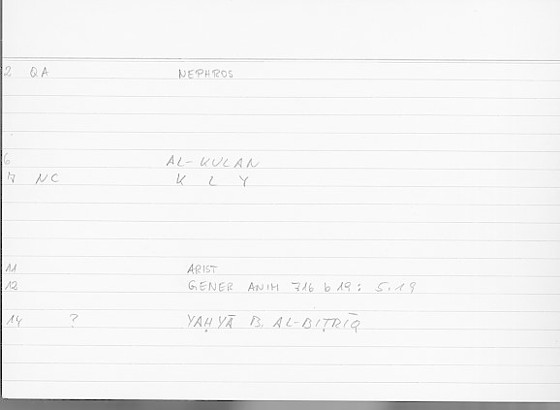 2 QA NEPHROS
6 AL-KULAN
7 NC K L Y
11 ARIST
12 GENER ANIM 716 b 19: 5.19
14 ? YAḤYĀ B. AL-BIṬRĪQ